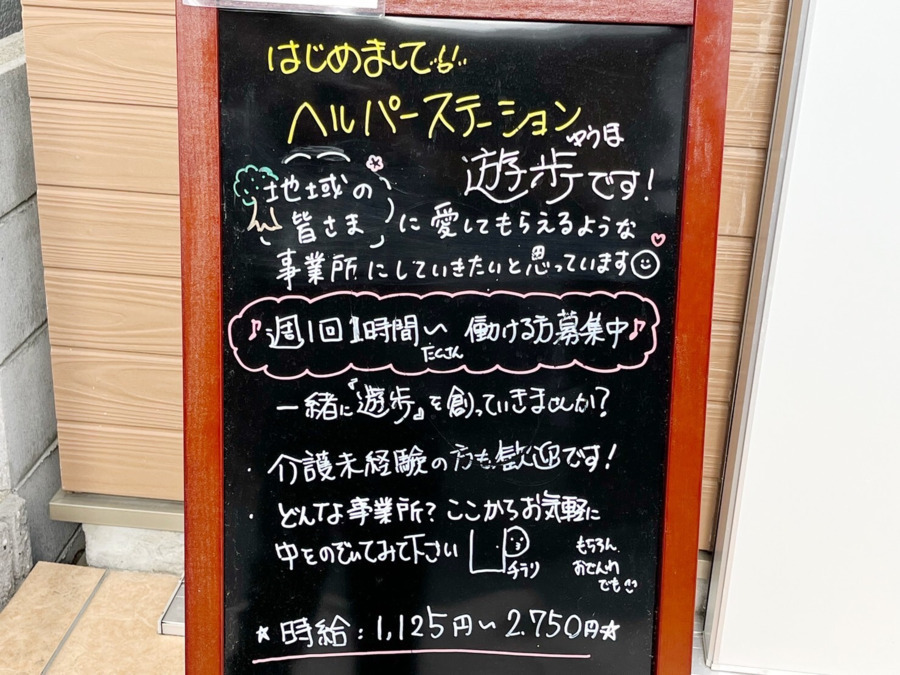 はじめまして
ヘルパーステーション
ゆうほ
遊歩です!
地域の
皆さま に愛してもらえるような
事業所にしていきたいと思っています
♪週1回1時間〜たくさん 働ける方募集中♪
一緒に『遊歩』を創っていきませんか?
・介護未経験の方も歓迎です!
・どんな事業所?ここからお気軽に
中をのぞいてみて下さい
チラリ
もちろん
おでんわ
でも
☆時給:1,125円〜2.750円☆